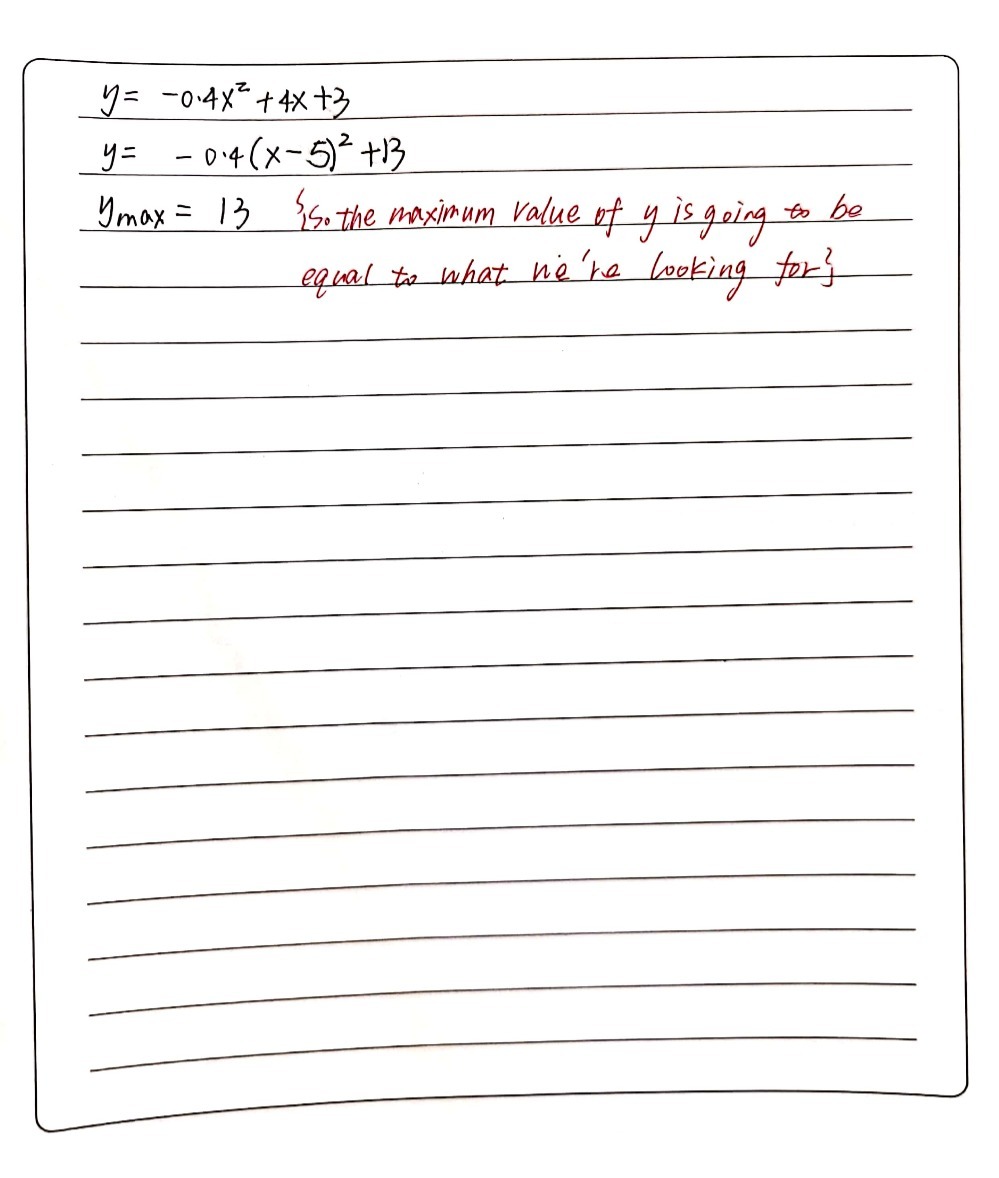 y = -0.4x² + 4x + 3
y = -0.4(x-5)² + 13
ymax = 13 {So the maximum value of y is going to be
equal to what we're looking for}